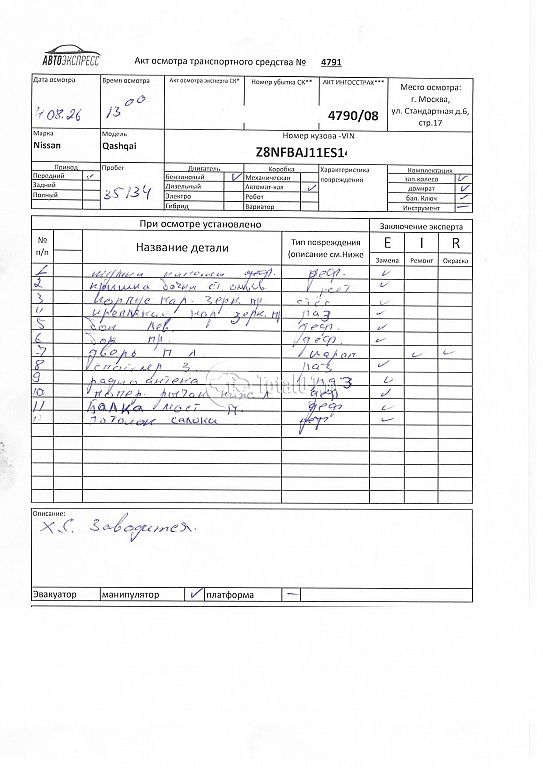 АВТОЭКСПРЕСС
Акт осмотра транспортного средства № 4791
Дата осмотра Время осмотра Акт осмотра эксперта СК* Номер убытка СК** АКТ ИНГОССТРАХ*** Место осмотра:
г. Москва,
ул. Стандартная д.6,
стр.17
08.26 13 00 4790/08
Марка Модель Номер кузова -VIN
Nissan Qashqai Z8NFBAJ11ES1
Привод Пробег Двигатель Коробка Характеристика повреждения Комплектация
Передний Бензиновый Механическая зап.колесо
Задний Дизельный Автомат-кая домкрат
Полный 35134 Электро Робот бал. Ключ
Гибрид Вариатор Инструмент
При осмотре установлено Заключение эксперта
№ п/п Название детали Тип повреждения (описание см.Ниже E I R
Замена Ремонт Окраска
1 деф.
2 крышка бачка
3 корпус нар. зерк. пр
4 крепление нар зерк. п раз
5 бок лев. деф.
6 бок пр. деф.
7 дверь п л царап
8 спойлер з. раз
9 радио антена раз
10 рычаг л деф
11 Балка мост деф
потолок салона деф
TotalCrash
Описание:
Х.С. Заводится.
Эвакуатор манипулятор платформа —